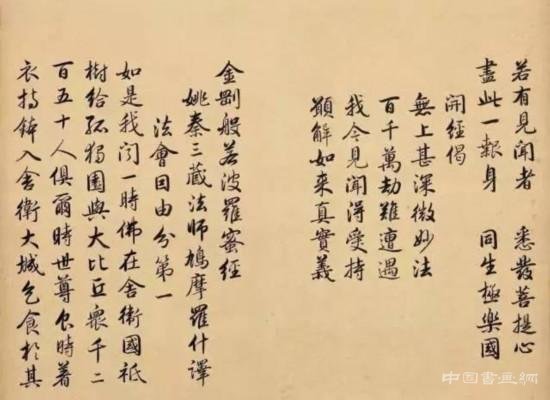 若有見聞者 悉發菩提心
盡此一報身 同生極樂國
開經偈
無上甚深微妙法
百千萬劫難遭遇
我今見聞得受持
願解如来真實義
金剛般若波羅蜜經
姚秦三藏法師鳩摩羅什譯
法會因由分第一
如是我聞一時佛在舍衛國祇
樹給孤獨園與大比丘眾千二
百五十人俱爾時世尊食時著
衣持鉢入舍衛大城乞食於其
中国書画網